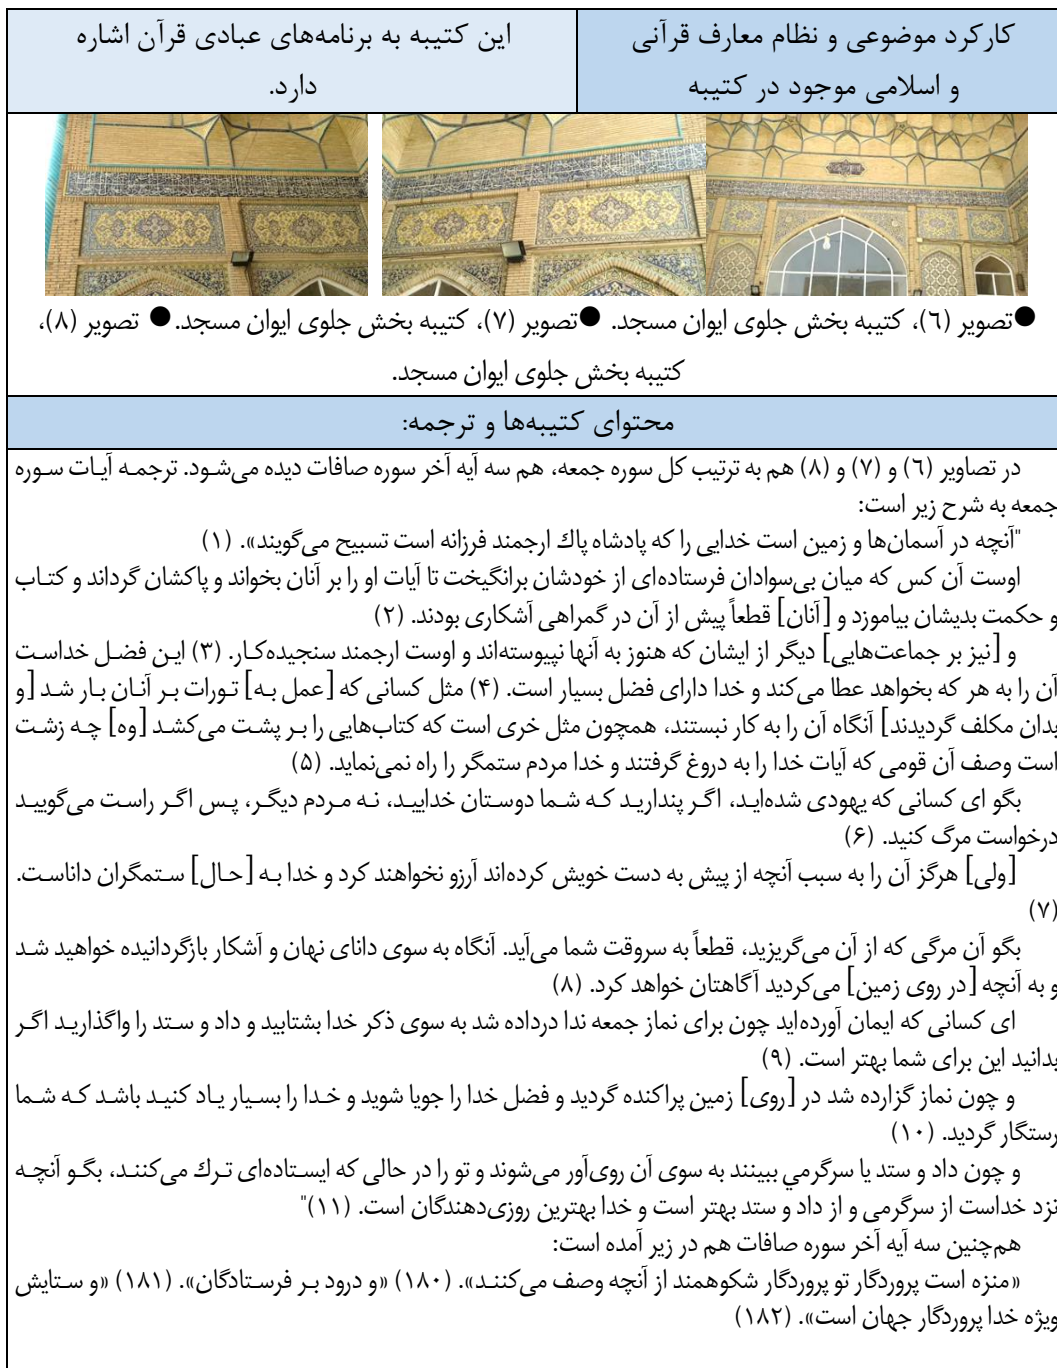 کارکرد موضوعی و نظام معارف قرآنی
و اسلامی موجود در کتیبه
این کتیبه به برنامه‌های عبادی قرآن اشاره
دارد.
●تصویر (٦)، کتیبه بخش جلوی ایوان مسجد. ●تصویر (٧)، کتیبه بخش جلوی ایوان مسجد.● تصویر (٨)،
کتیبه بخش جلوی ایوان مسجد.
محتوای کتیبه‌ها و ترجمه:
در تصاویر (٦) و (٧) و (٨) هم به ترتیب کل سوره جمعه، هم سه آیه آخر سوره صافات دیده می‌شـود. ترجمـه آیـات سـوره
جمعه به شرح زیر است:
"آنچه در آسمان‌ها و زمین است خدایی را که پادشاه پاك ارجمند فرزانه است تسبیح می‌گویند». (۱)
اوست آن کس که میان بی‌سوادان فرستاده‌ای از خودشان برانگیخت تا آیات او را بر آنان بخواند و پاکشان گرداند و کتـاب
و حکمت بدیشان بیاموزد و [آنان] قطعاً پیش از آن در گمراهی آشکاری بودند. (۲)
و [نیز بر جماعت‌هایی] دیگر از ایشان که هنوز به آنها نپیوسته‌اند و اوست ارجمند سنجیده‌کـار. (۳) ایـن فضـل خداسـت
آن را به هر که بخواهد عطا می‌کند و خدا دارای فضل بسیار است. (۴) مثل کسانی که [عمل بـه] تـورات بـر آنـان بـار شـد [و
بدان مکلف گردیدند] آنگاه آن را به کار نبستند، همچون مثل خری است که کتاب‌هایی را بـر پشت می‌کشـد [وه] چـه زشـت
است وصف آن قومی که آیات خدا را به دروغ گرفتند و خدا مردم ستمگر را راه نمی‌نماید. (۵)
بگو ای کسانی که یهودی شده‌ایـد، اگـر پنداریـد کـه شـما دوسـتان خداییـد، نـه مـردم دیگـر، پـس اگـر راسـت می‌گوییـد
درخواست مرگ کنید. (۶)
[ولی] هرگز آن را به سبب آنچه از پیش به دست خویش کرده‌اند آرزو نخواهند کرد و خدا بـه [حـال] سـتمگران داناسـت.
(۷)
بگو آن مرگی که از آن می‌گریزید، قطعاً به سروقت شما می‌آید. آنگاه به سوی دانای نهان و آشکار بازگردانیده خواهید شـد
و به آنچه [در روی زمین] می‌کردید آگاهتان خواهد کرد. (۸)
ای کسانی که ایمان آورده‌اید چون برای نماز جمعه ندا درداده شد به سوی ذکر خدا بشتابید و داد و سـتد را واگذاریـد اگـر
بدانید این برای شما بهتر است. (۹)
و چون نماز گزارده شد در [روی] زمین پراکنده گردید و فضل خدا را جویا شوید و خـدا را بسـیار یـاد کنیـد باشـد کـه شـما
رستگار گردید. (۱۰)
و چون داد و ستد یا سرگرمي ببینند به سوی آن روی‌آور می‌شوند و تو را در حالی که ایسـتاده‌ای تـرك می‌کننـد، بگـو آنچـه
نزد خداست از سرگرمی و از داد و ستد بهتر است و خدا بهترین روزی‌دهندگان است. (۱۱)"
هم‌چنین سه آیه آخر سوره صافات هم در زیر آمده است:
«منزه است پروردگار تو پروردگار شکوهمند از آنچه وصف می‌کننـد». (۱۸۰) «و درود بـر فرسـتادگان». (۱۸۱) «و سـتایش
ویژه خدا پروردگار جهان است». (۱۸۲)